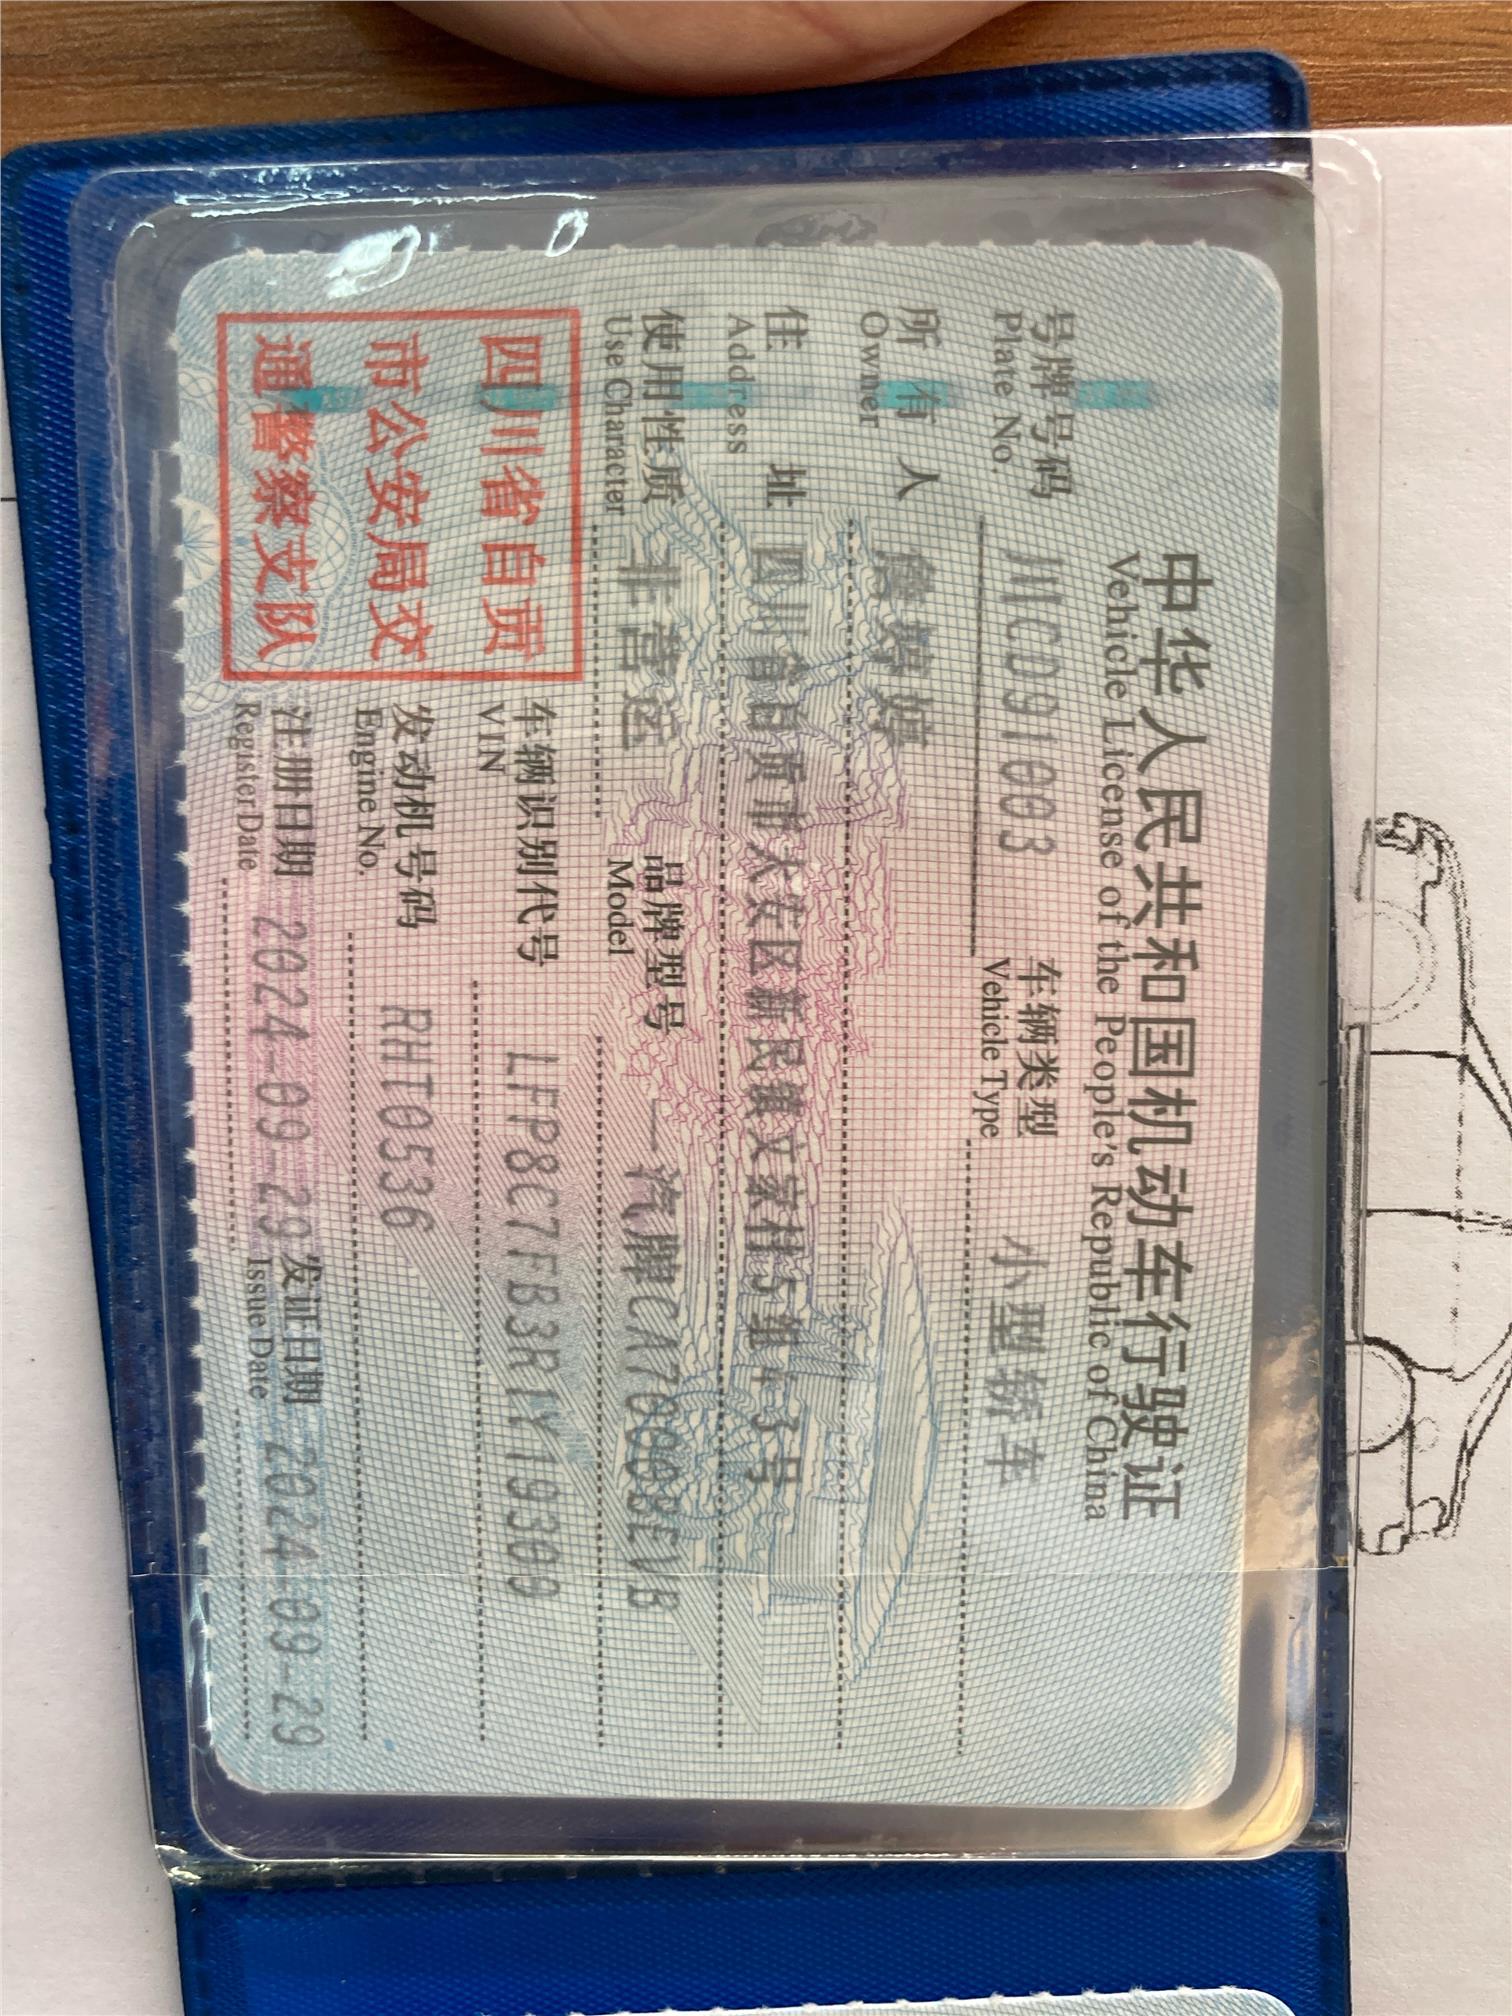 中华人民共和国机动车行驶证
Vehicle License of the People's Republic of China
号牌号码 川CD91003 车辆类型 小型轿车
Plate No. Vehicle Type
所有人
Owner
住址 四川省自贡市大安区新民镇文家村5组43号
Address
使用性质 非营运 品牌型号 一汽牌CA7000BEVB
Use Character Model
四川省自贡
市公安局交
通警察支队
车辆识别代号 LFP8C7FB3R1Y19309
VIN
发动机号码 RHT0536
Engine No.
注册日期 2024-09-29 发证日期 2024-09-29
Register Date Issue Date